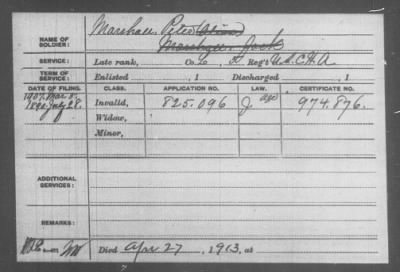 NAME OF SOLDIER: Marshall Peter Alias
Marshall, Jack
SERVICE: Late rank, Co. L, Reg't U.S.C.H.A
TERM OF SERVICE: Enlisted , 1 Discharged , 1
DATE OF FILING. CLASS. APPLICATION NO. LAW. CERTIFICATE NO.
1907 Mar 8. 
1890 July 28. Invalid, 825.096 J age 974.876.
Widow,
Minor,
ADDITIONAL SERVICES:
REMARKS:
Died Apr. 27, 1913, at